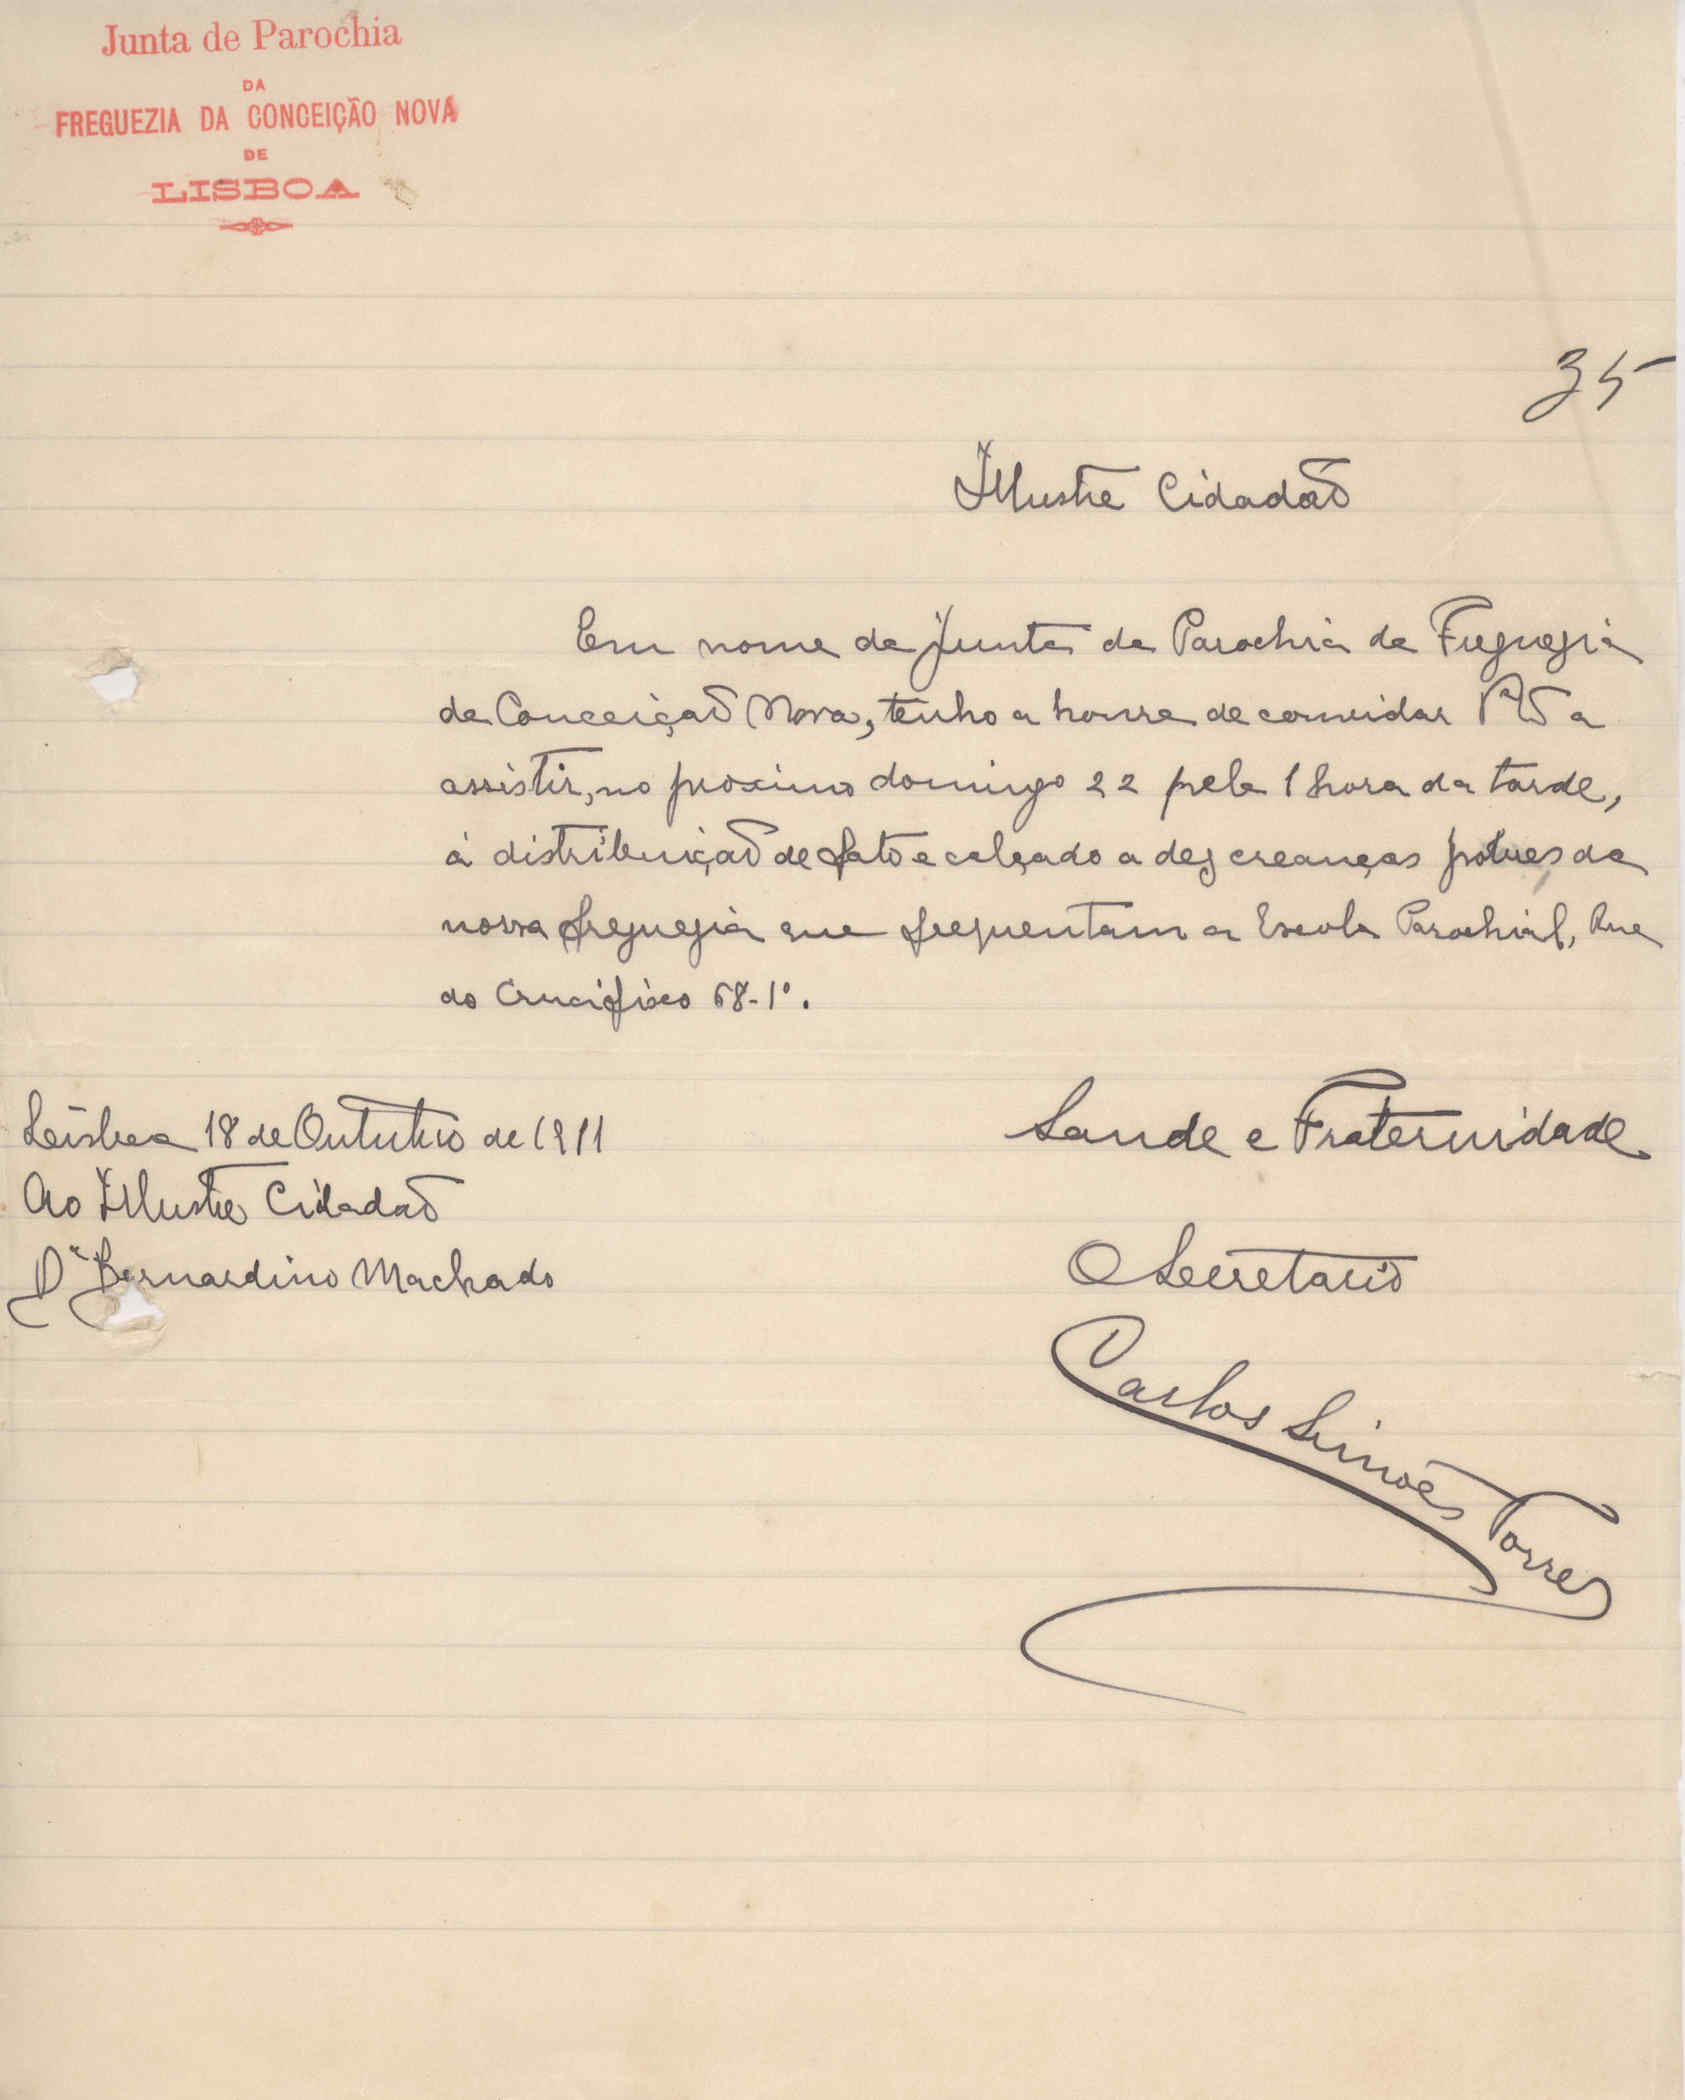 Junta de Parochia
DA
FREGUEZIA DA CONCEIÇÃO NOVA
DE
LISBOA
35
Illustre Cidadão
Em nome da Junta de Parochia da Freguezia
da Conceição Nova, tenho a honra de convidar a
assistir, no proximo domingo 22 pela 1 hora da tarde,
á distribuição de fato e calçado a dez creanças pobres da
nossa freguezia que frequentam a Escola Parochial, Rua
do Crucifixo 68-1º.
Lisboa 18 de Outubro de 1911
Saude e Fraternidade
Ao Illustre Cidadão
Dr Bernardino Machado
O Secretario
Carlos Simões Torres